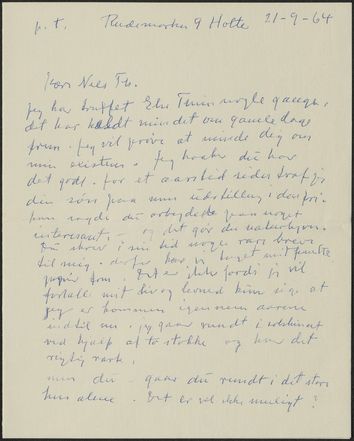 p. t. Rudemarken 9 Holte 21-9-64
Kære Niels Th.
Jeg har truffet Else Thim nogle gange,
det har kaldt minder om gamle dage
frem. Jeg vil prøve at minde dig om
min existens. Jeg haaber du har
det godt. for et aarstid siden traf jeg
din søn paa min udstilling i den fri.
han sagde du arbejdede paa noget
interessant, – og det gør du naturligvis.
Du skrev i sin tid nogle rare breve
til mig. derfor har jeg taget mit
papir frem. Det er ikke fordi jeg vil
fortælle mit liv og levned kun sige at
jeg er kommen igennem aarene
indtil nu. jeg gaar rundt i
ved hjælp af to stokke og har det
rigtig rart.
men du – gaar du rundt i det store
hus alene. Det er vel ikke muligt?